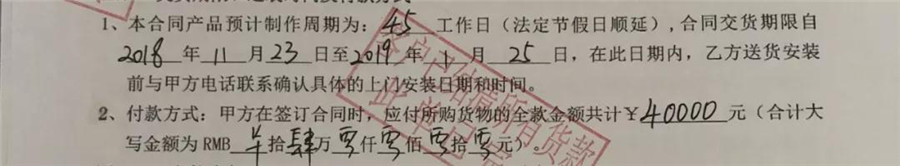 1、本合同产品预计制作周期为：45 工作日（法定节假日顺延），合同交货期限自
2018 年 11 月 23 日至 2019 年 1 月 25 日，在此日期内，乙方送货安装
前与甲方电话联系确认具体的上门安装日期和时间。
2、付款方式：甲方在签订合同时，应付所购货物的全款金额共计￥40000 元（合计大
写金额为RMB 拾肆万零仟零佰零拾零元）。
客户已结清所有货款